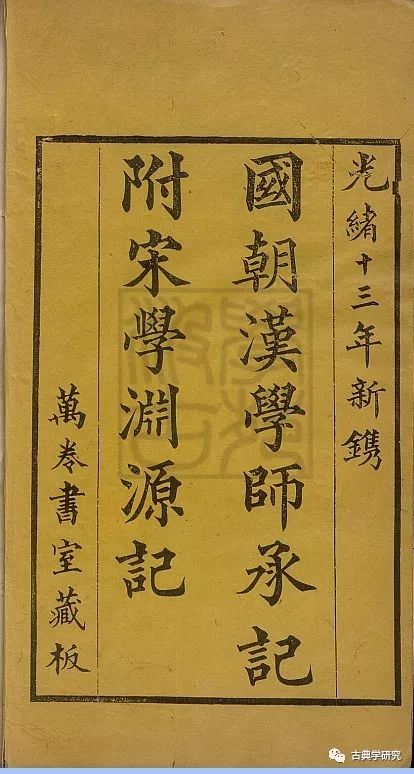 光緒十三年新鐫
國朝漢學師承記
附宋學淵源記
萬卷書室藏板
古典学研究